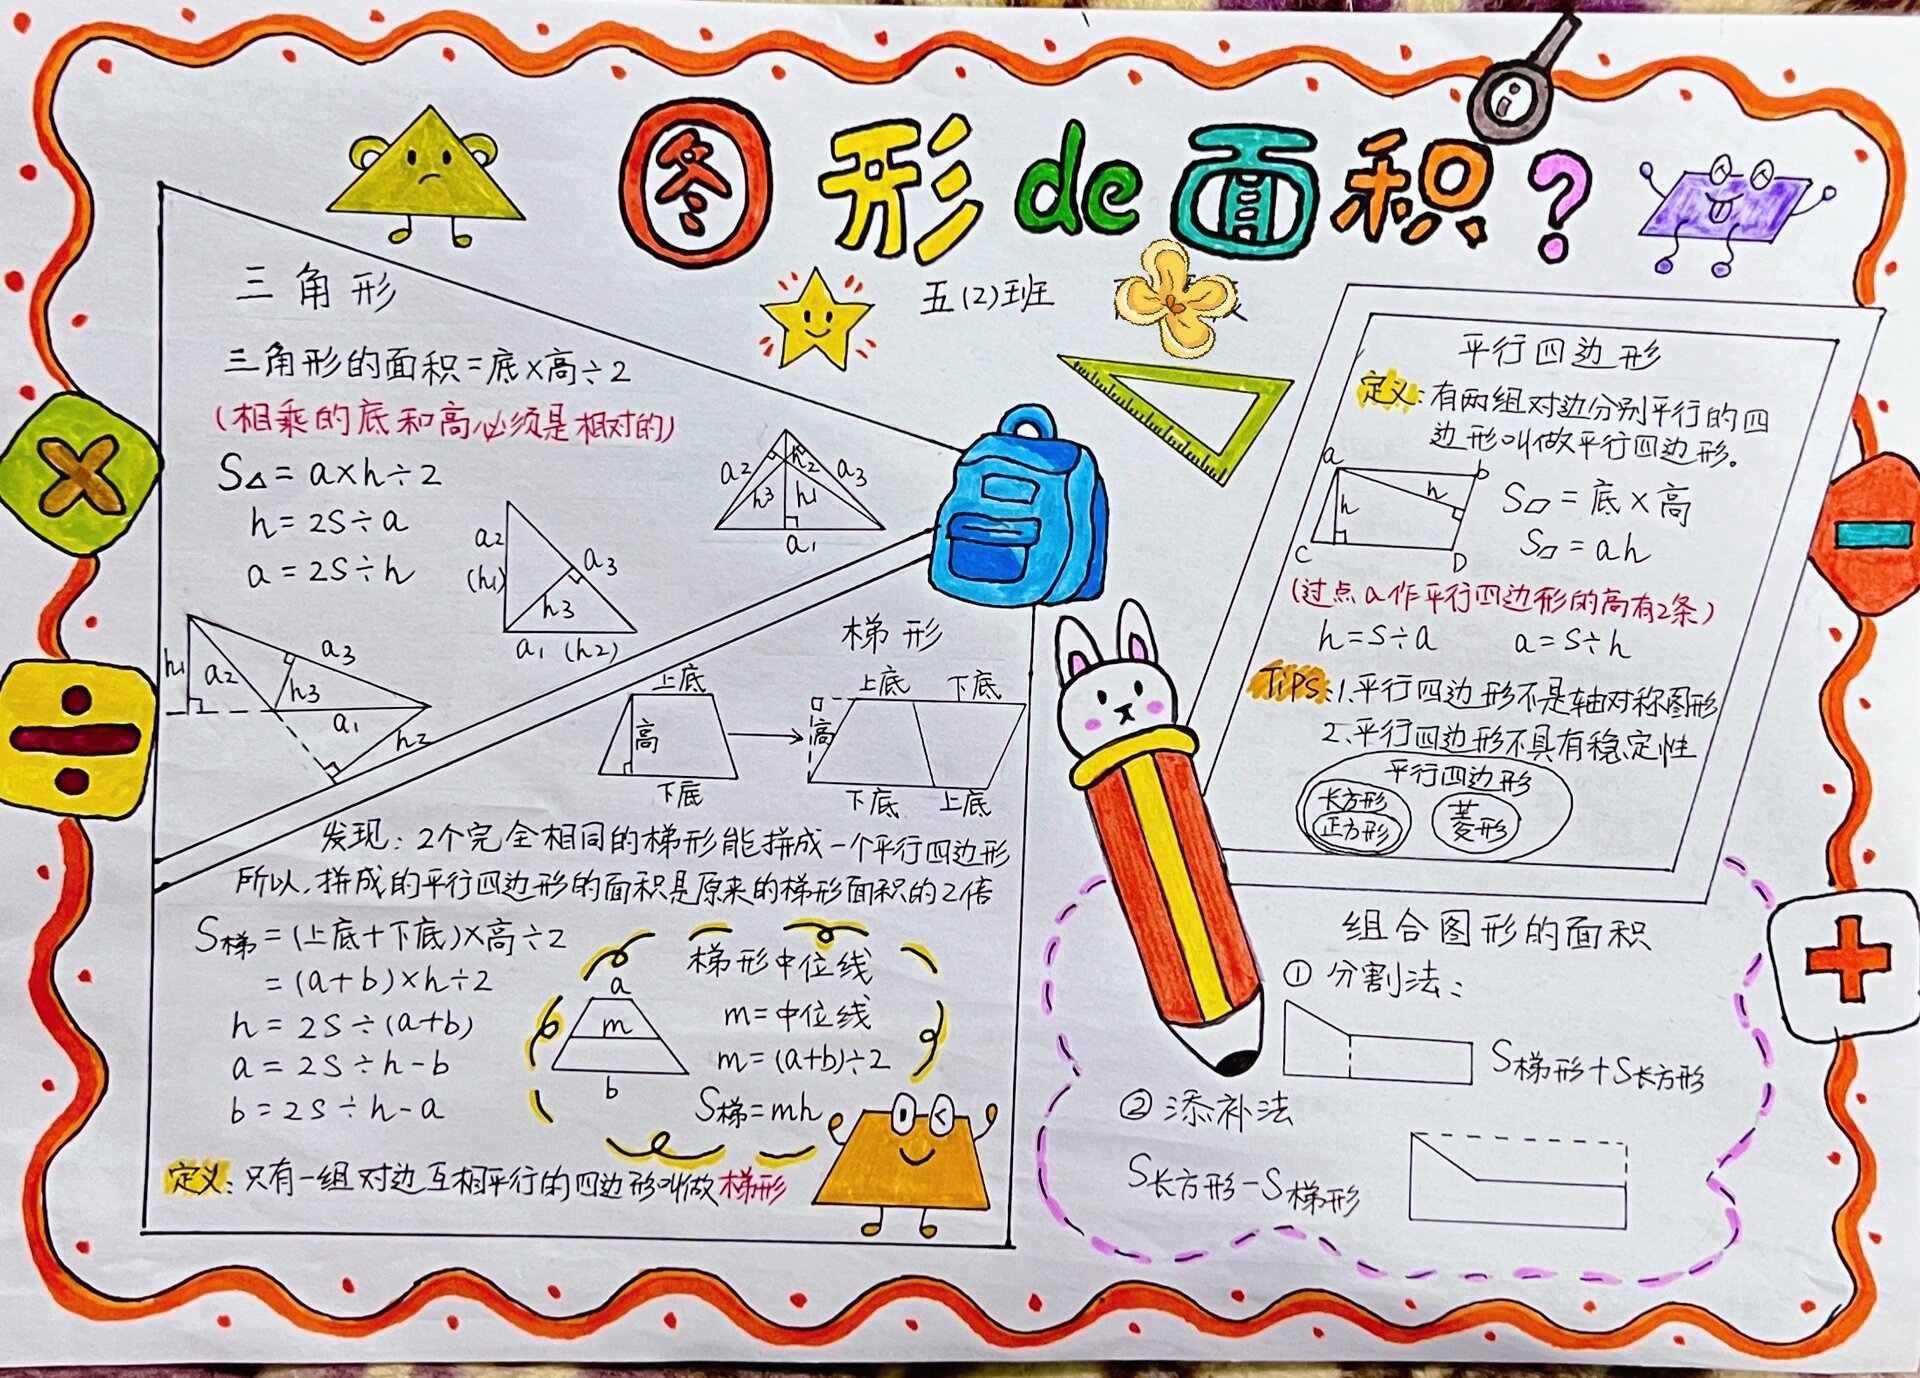 图形de面积?
五(2)班
三角形
三角形的面积=底×高÷2
(相乘的底和高必须是相对的)
S△=a×h÷2
h=2S÷a
a=2S÷h
a2 h3 h2 h1 a3
a1
a2
(h1)
a3
h3
a1 (h2)
h1 a2 a3
h3
a1 h2
梯形
上底
高
下底
上底 下底
高
下底 上底
发现:2个完全相同的梯形能拼成一个平行四边形
所以,拼成的平行四边形的面积是原来的梯形面积的2倍
S梯=(上底+下底)×高÷2
=(a+b)×h÷2
h=2S÷(a+b)
a=2S÷h-b
b=2S÷h-a
梯形中位线
a
m
b
m=中位线
m=(a+b)÷2
S梯=mh
定义:只有一组对边互相平行的四边形叫做梯形
平行四边形
定义:有两组对边分别平行的四
边形叫做平行四边形。
a b
h h
C D
S▱=底×高
S▱=ah
(过点a作平行四边形的高有2条)
h=S÷a a=S÷h
TiPS:1.平行四边形不是轴对称图形
2.平行四边形不具有稳定性
平行四边形
长方形
正方形
菱形
组合图形的面积
①分割法:
S梯形+S长方形
②添补法
S长方形-S梯形